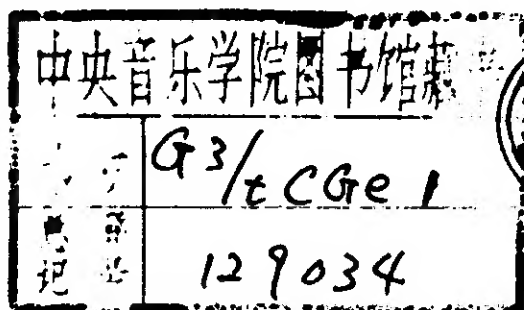 中央音乐学院图书馆藏书
G3/t CGe 1
129034